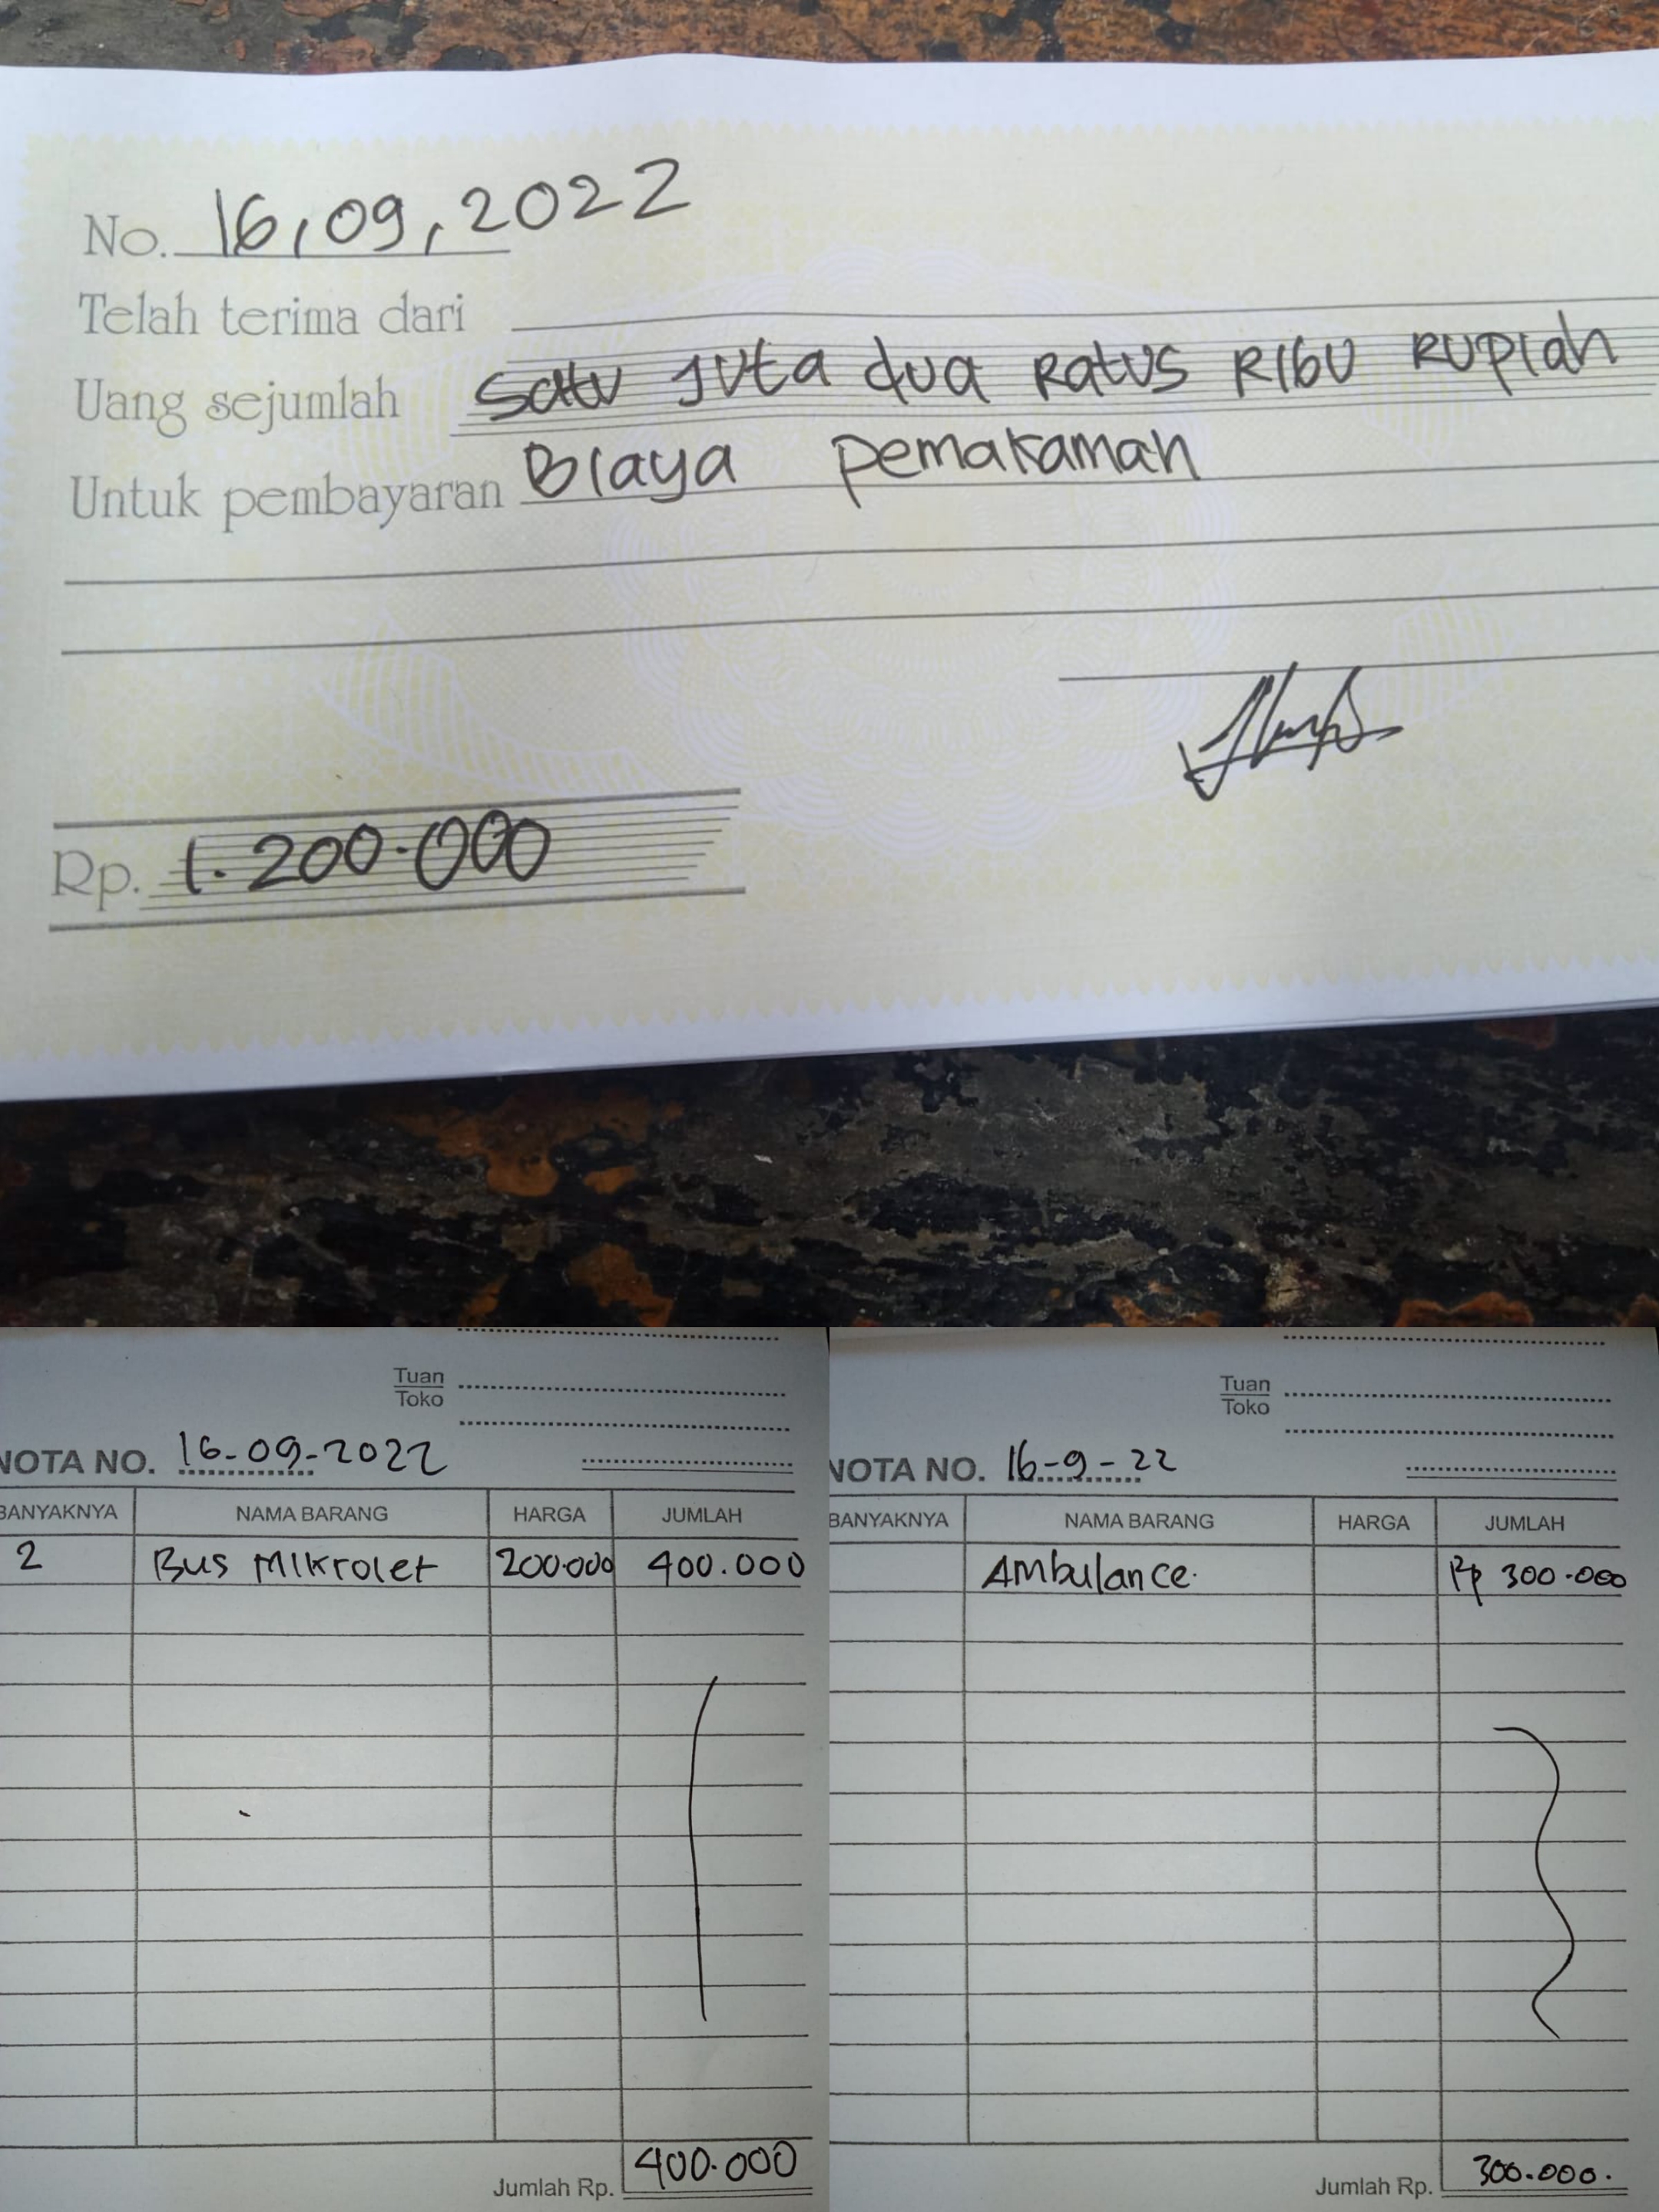 No. 16,09,2022
Telah terima dari
Uang sejumlah satu juta dua Ratus Ribu Rupiah
Untuk pembayaran Biaya pemakaman
Rp. 1.200.000
Tuan
Toko
NOTA NO. 16-09-2022
BANYAKNYA NAMA BARANG HARGA JUMLAH
2 Bus Mikrolet 200.000 400.000
Jumlah Rp. 400.000
Tuan
Toko
NOTA NO. 16-9-22
BANYAKNYA NAMA BARANG HARGA JUMLAH
Ambulance. Rp 300.000
Jumlah Rp. 300.000.